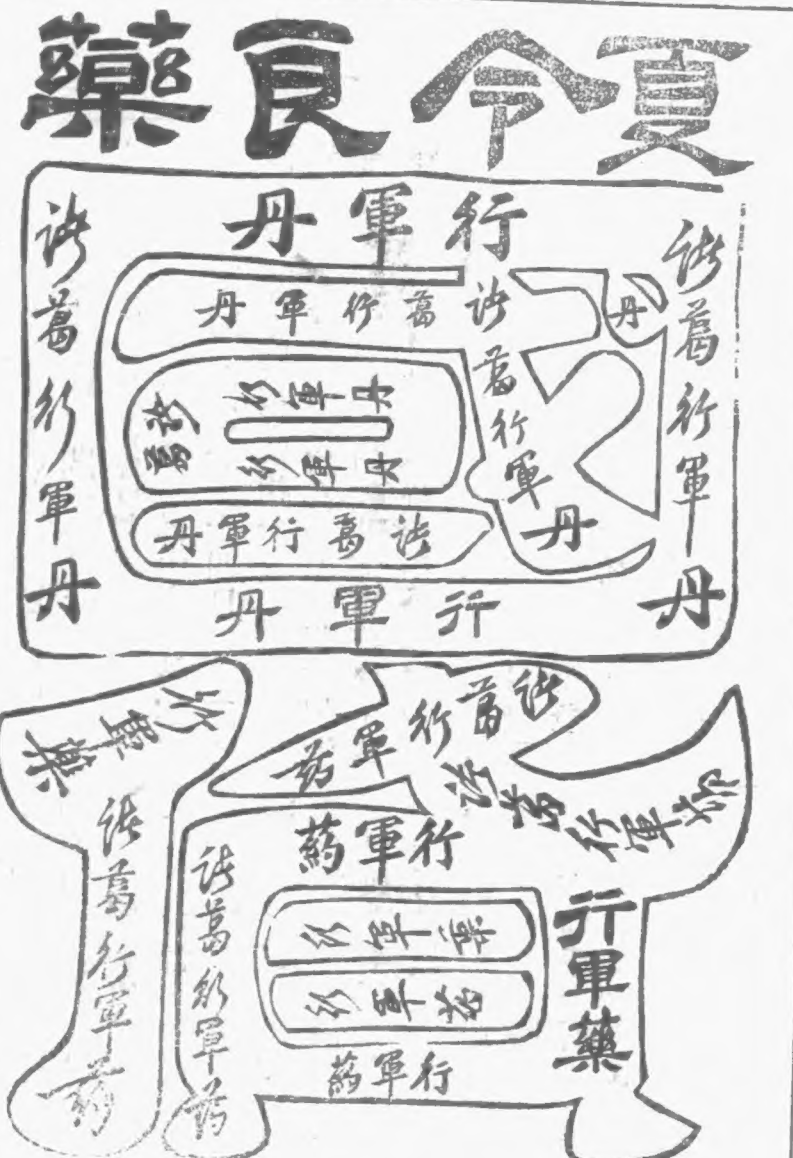 夏令良藥
行軍丹
諸葛行軍丹
諸葛行軍丹
諸葛行軍丹
諸葛行軍丹
丹
諸葛
行軍丹
行軍丹
諸葛行軍丹
行軍丹
諸葛行軍药
諸葛行軍药
行軍藥
行軍藥
諸葛行軍药
諸葛行軍药
行軍藥
行軍药
行軍藥
行軍药
行軍藥